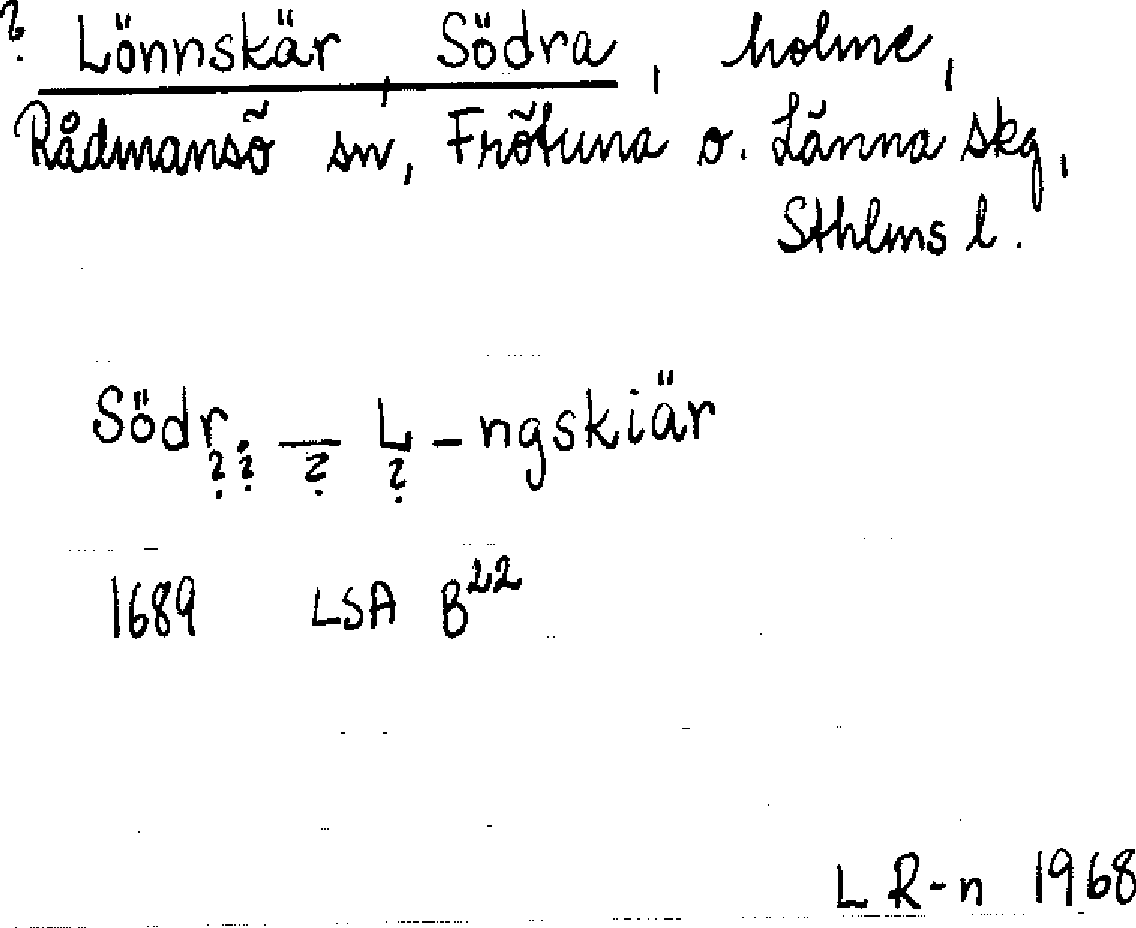 ? Lönnskär, Södra, holme,
Rådmansö sn, Frötuna o. Länna skg,
Sthlms l.
Södr. — L – ngskiär
? ? ? ?
1689 LSA B22
L R-n 1968